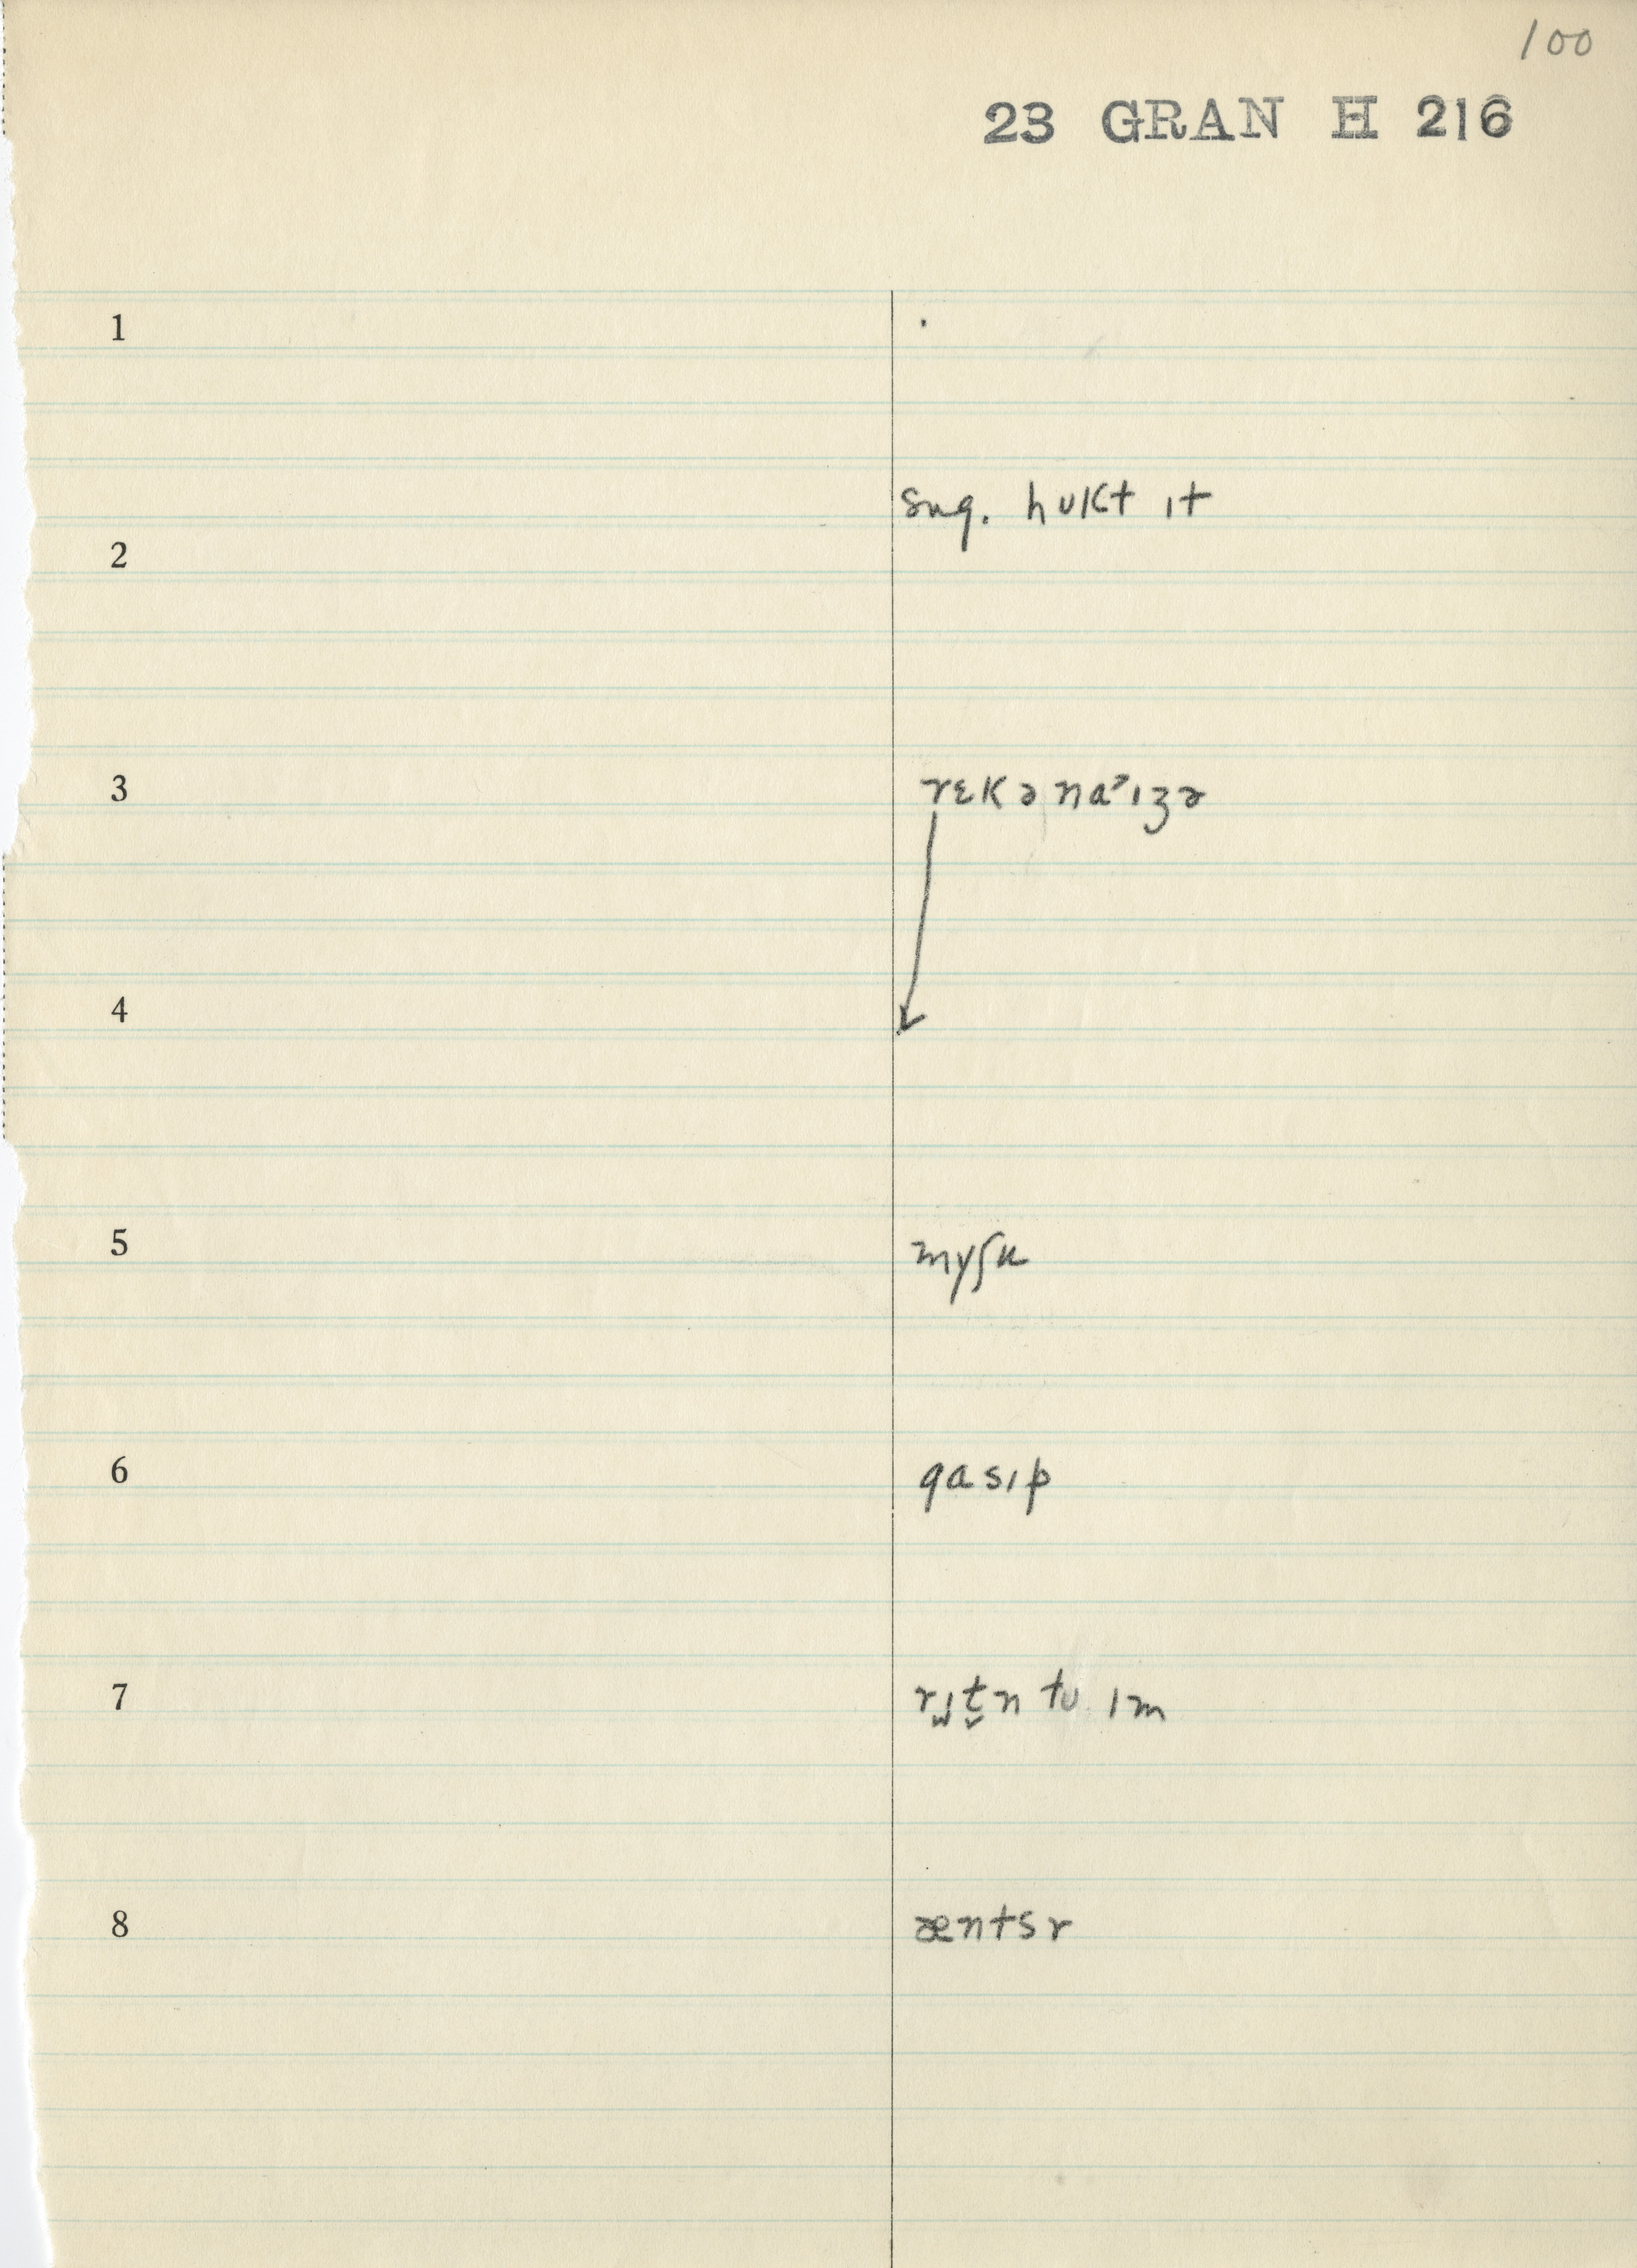 100
23 GRAN H 216
1
sug. hʊkt ɪt
2
3 rɛkənaᵊɪzə
4
5
6 gasɪp
7 rɪt̬n tʊ ɪm
8 æntsr